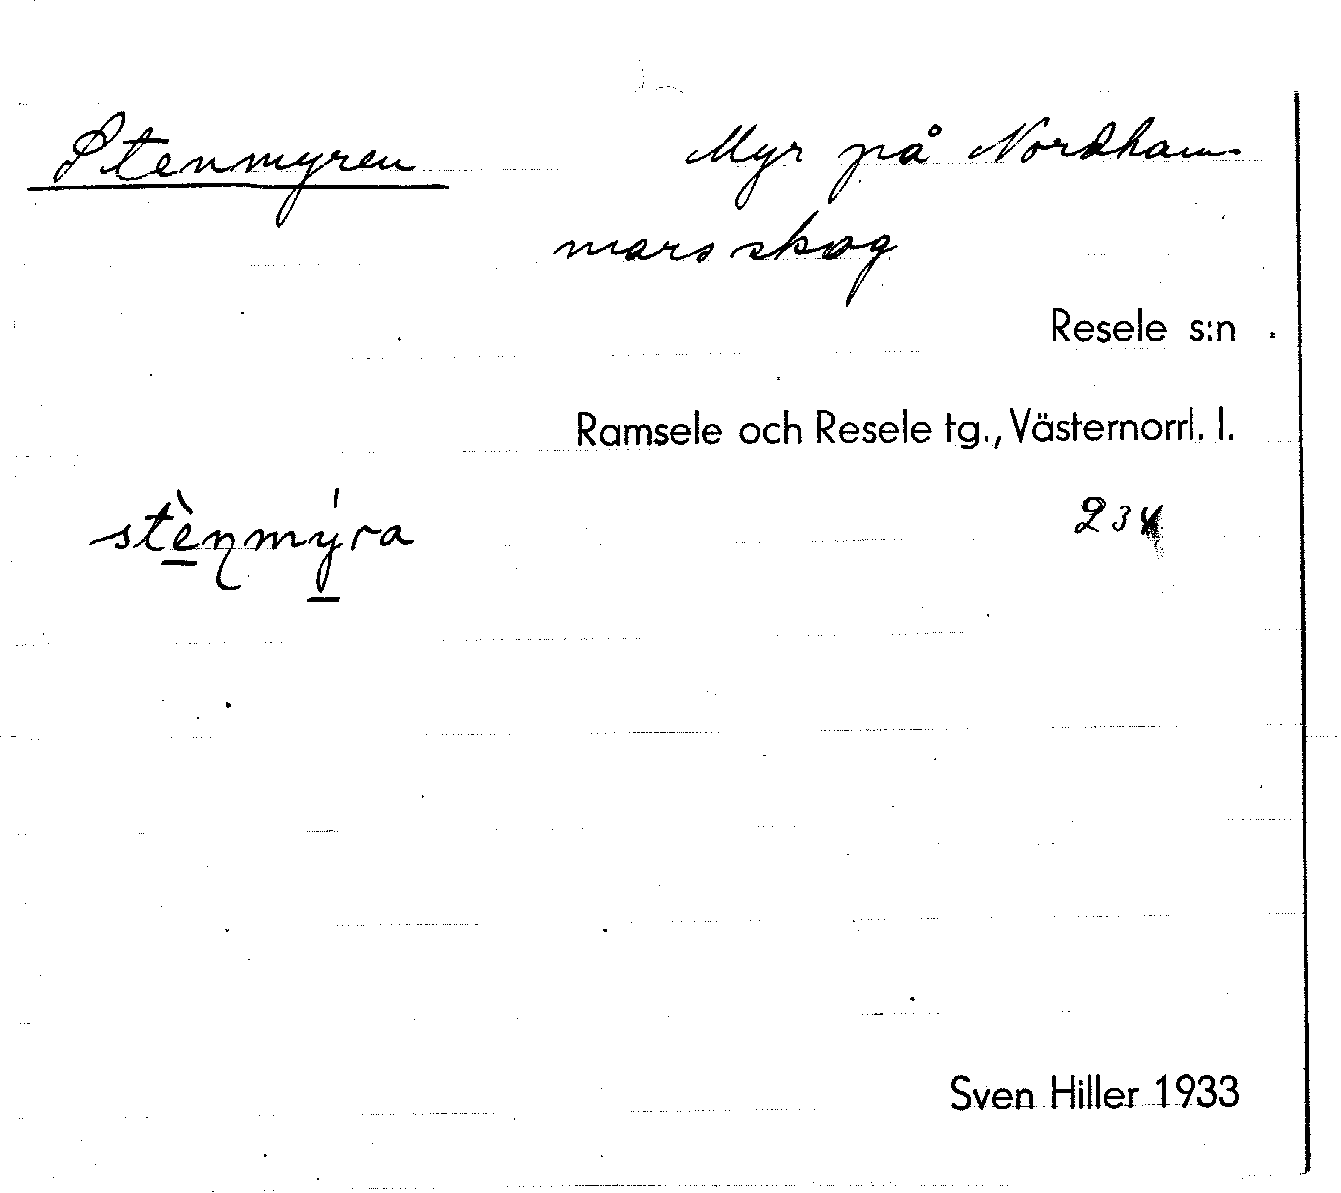 Stenmyren Myr på Nordham-
mars skog
Resele s:n
Ramsele och Resele tg., Västernorrl. l.
stè̱ṇmý̱ra 234
Sven Hiller 1933